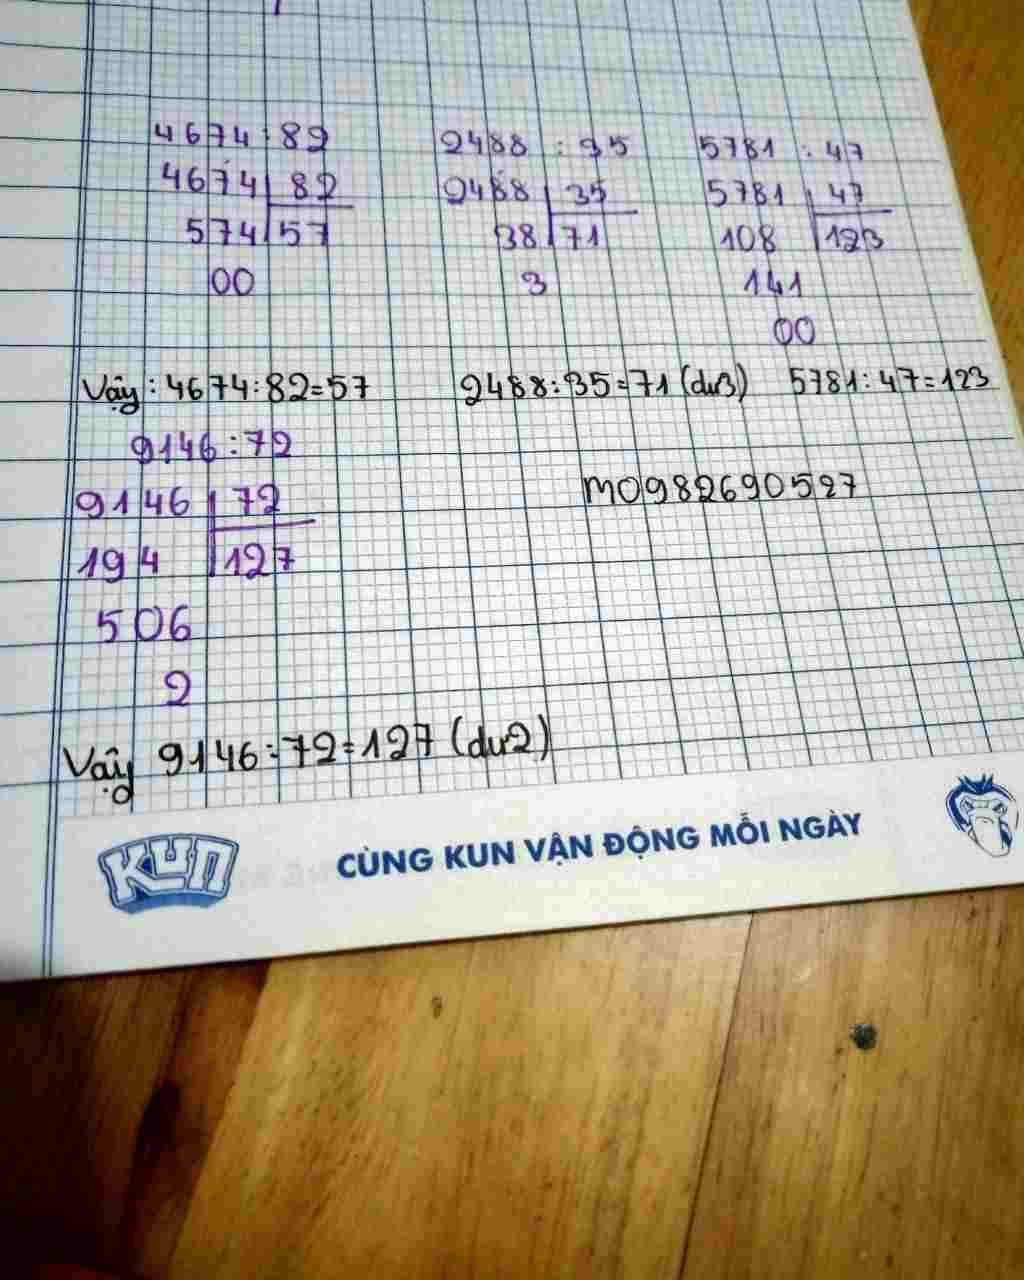 4674 : 82
4674 82
574 57
00
2488 : 35
2488 35
38 71
3
5781 : 47
5781 47
108 123
141
00
Vậy : 4674 : 82 = 57 2488 : 35 = 71 (dư 3) 5781 : 47 = 123
9146 : 72
9146 72
194 127
506
2
m0982690527
Vậy 9146 : 72 = 127 (dư 2)
KUN
CÙNG KUN VẬN ĐỘNG MỖI NGÀY